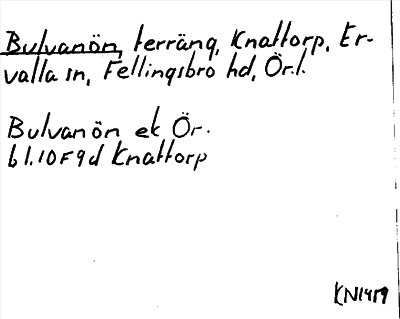 Bulvanön, terräng, Knattorp, Er-
valla sn, Fellingsbro hd, Ör.l.
Bulvanön ek Ör.
bl.10F9d Knattorp